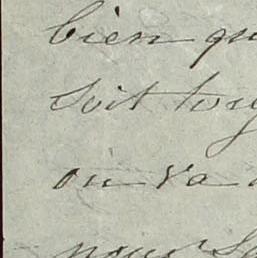 bien qu
soit touj
on va
pour s